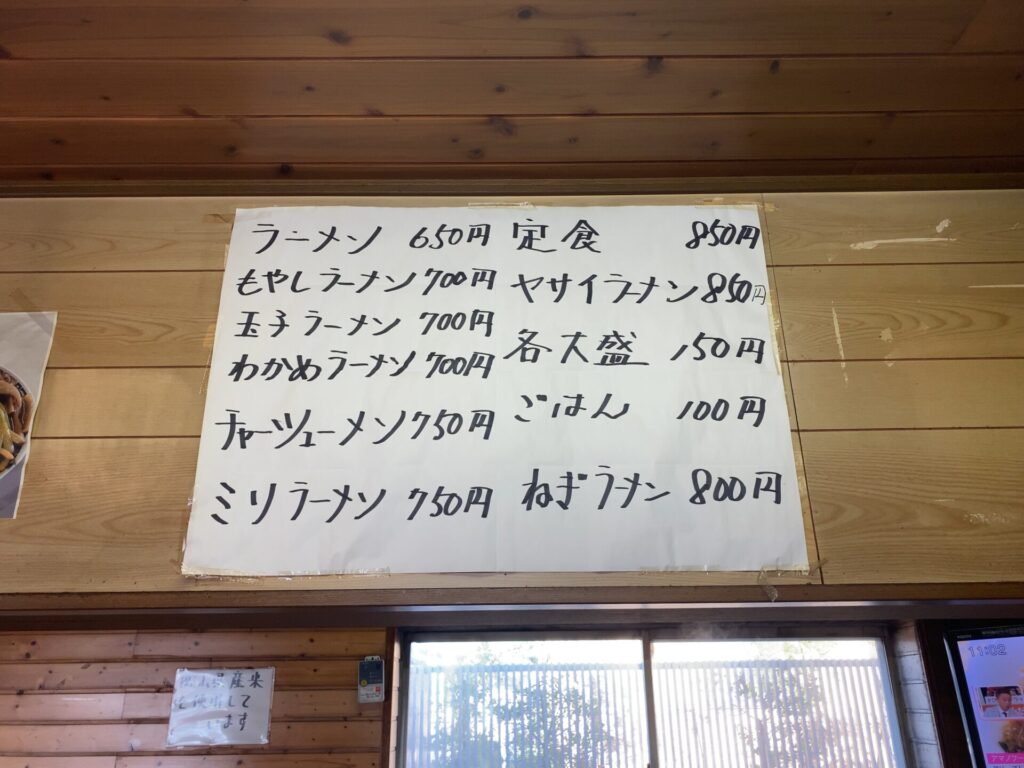 ラーメン 650円
もやしラーメン 700円
玉子ラーメン 700円
わかめラーメン 700円
チャーシューメン 750円
ミソラーメン 750円
定食 850円
ヤサイラーメン 850円
各大盛 150円
ごはん 100円
ねぎラーメン 800円
県産米
を使用して
います
11:02